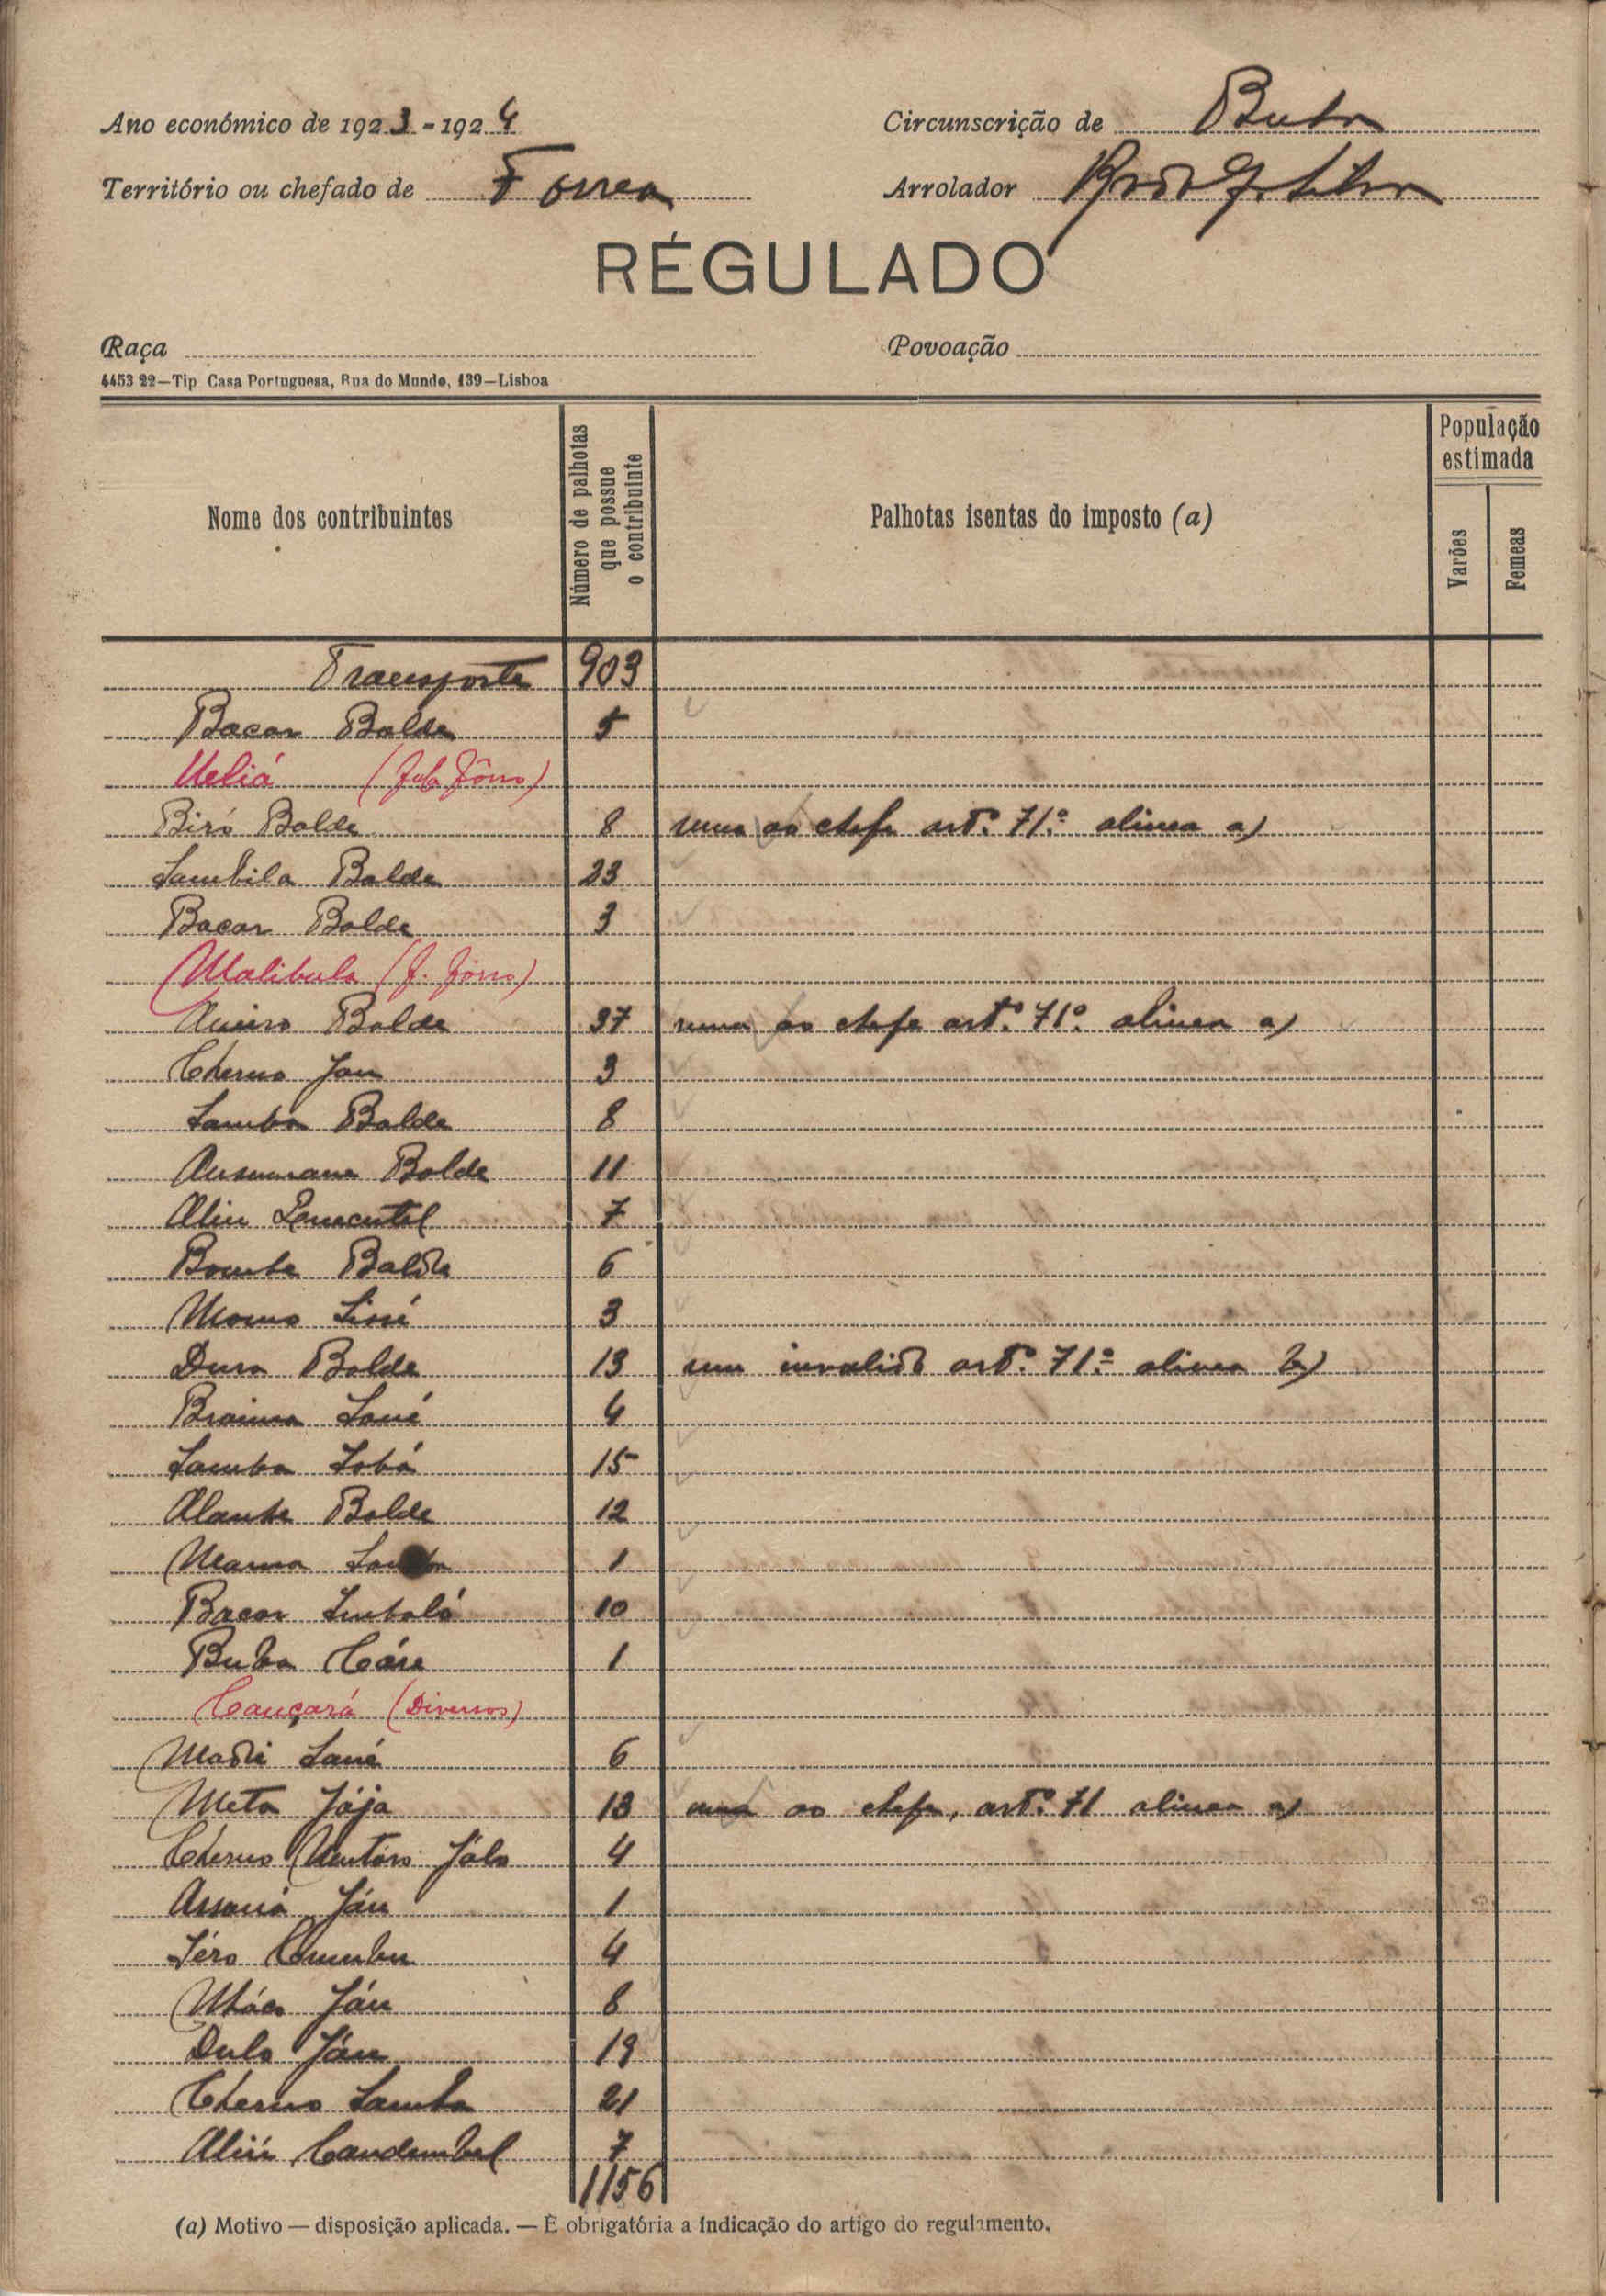 Ano económico de 1923-1924
Circunscrição de Buba
Território ou chefado de Forrea
Arrolador
RÉGULADO
Raça
Povoação
4453 22—Tip Casa Portuguesa, Rua do Mundo, 139—Lisboa
Nome dos contribuintes
Número de palhotas que possue o contribuinte
Palhotas isentas do imposto (a)
População estimada
Varões
Femeas
Transporte 903
Bacar Balde 5
(fula fôrro)
Biró Balde 8 uma ao chefe artº 71.º alinea a)
Sambila Balde 23
Bacar Balde 3
Malibula (f. fôrro)
Balde 37 uma ao chefe artº 71º alinea a)
Cherno Jau 3
Samba Balde 8
Balde 11
Aliu 7
Balde 6
Momo 3
Dura Balde 13 um invalido artº 71º alinea b)
Braima Sané 4
Samba 15
Alanke Balde 12
Mama 1
Bacar 10
Buba 1
Cauçará (Diversos)
Madi Sané 6
Meta Jája 13 uma ao chefe, artº 71 alinea a)
Cherno Jálo 4
Jáu 1
Séro 4
Jáu 8
Dulo Jáu 19
Cherno Samba 21
Aliú Candembel 7
1156
(a) Motivo — disposição aplicada. — É obrigatória a indicação do artigo do regulamento.